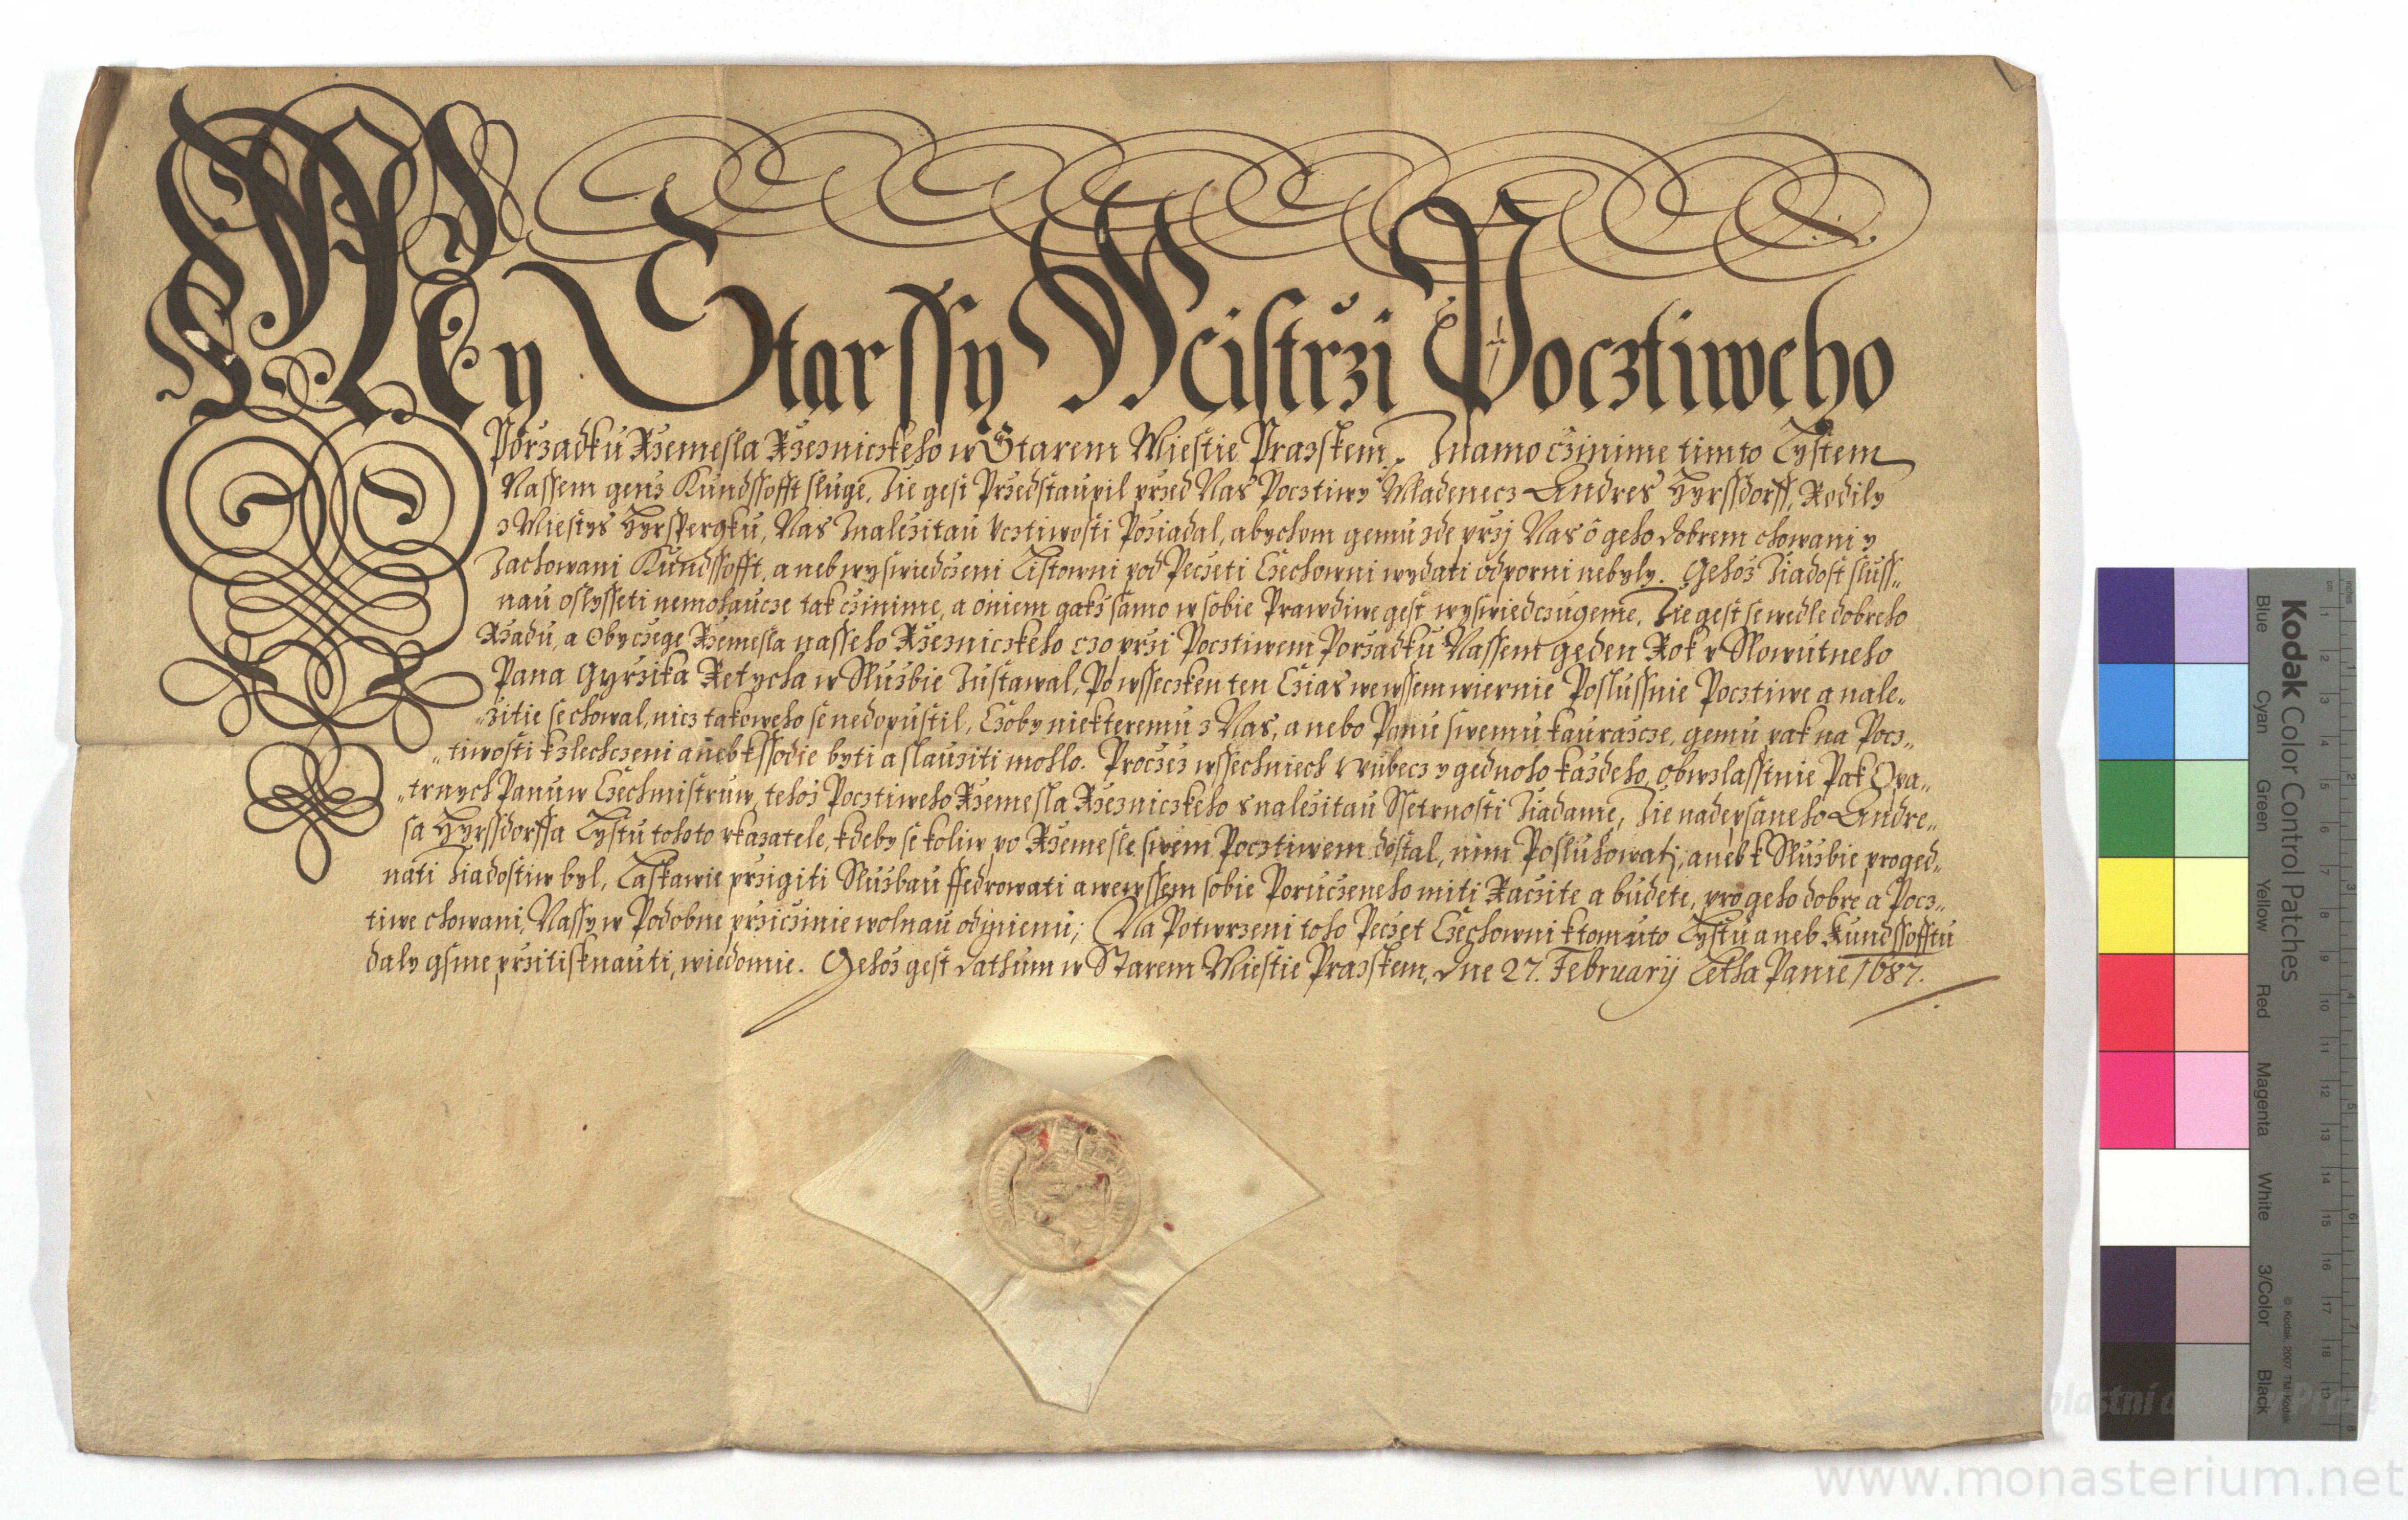 My Starssy Mcistrzi Pocztiweho
Porzadku Rzemesla Rzezniczkeho w Starem Miestie Prazskem. Znamo czinime timto Lystem
Nassem genz Kundssofft sluge, Zie gest Przedstaupil przed Nas Pocztiwy Mladenecz Andres Hyrssdorff, Rodily
z Miestys Hyrspergku, Nas Znalezitau Vcztiwosti Poziadal, abychom gemu zde przj Nas o geho dobrem chowani y
Zachowani Kundssofft, aneb wyswiedczeni Listowni pod Peczeti Czechowni wydati odporni nebyly. Gehoz Ziadost sluss„
nau oslysseti nemohaucze tak czinime, a oniem gakz samo w sobie Prawdiwe gest wyswiedczugeme, Zie gest se wedle dobreho
Rzadu, a Obyczege Rzemesla nasseho Rzezniczkeho czo przi Pocztiwem Porzadku Nassem geden Rok v Slowutneho
Pana Gyrzika Retycha w Sluzbie Zustawal, Po wsseczken ten Czias we wssem wiernie Poslussnie Pocztiwe a nale„
„zitie se chowal, nicz takoweho se nedopustil, Czoby niekteremu z Nas, anebo Panu swemu kaurazcze, gemu pak na Pocz„
„tiwosti k zlechczeni aneb k ssodie byti a slauziti mohlo. Proczez wssechniech Wubecz y gednoho kazdeho, obwzlasstnie Pak Opa„
„trnych Panuw Czechmistruw, tehoz Pocztiweho Rzemesla Rzezniczkeho s nalezitau Ssetrnosti Ziadame, Zie nadepsaneho Andre„
sa Hyrssdorffa Lystu tohoto vkazatele, kdeby se koliw po Rzemesle swem Pocztiwem dostal, nim Posluhowati, aneb k Sluzbie proged„
nati Ziadostiw byl, Laskawie przigiti Sluzbau ffedrowati a we wssem sobie Poruczeneho miti Raczite a budete, pro geho dobre a Pocz„
tiwe chowani, Nassy w Podobne prziczinie wolnau odmienu; Na Potwrzeni toho Peczet Czechowni k tomuto Lystu aneb Kundssofftu
daly gsme przitisknauti, wiedomie. Gehoz gest dathum w Starem Miestie Prazskem, dne 27. Februarij Letha Panie 1687.
Kodak Color Control Patches
Blue Cyan Green Yellow Red Magenta White 3/Color Black
© Kodak, 2007 TM: Kodak
www.monasterium.net